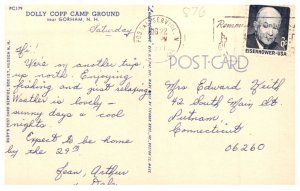 PC179
DOLLY COPP CAMP GROUND
near GORHAM, N. H.
Saturday
Hi!
We're on another trip,
up north. Enjoying
fishing and just relaxing
Weather is lovely -
sunny days & cool
nights
Expect to be home
by the 29th
Jean, Arthur
576
POSTAL SERVICE
PM
POST CARD
EISENHOWER·USA
Mrs Edward Keith
42 South Main St.
Putnam,
Connecticut
06260